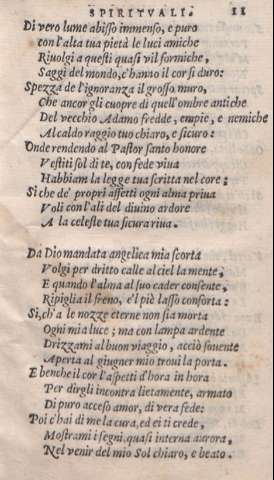 SPIRITVALI. 11
Di vero lume abisso immenso, e puro
con l'alta tua pietà le luci amiche
Riuolgi a questi quasi vil formiche,
Saggi del mondo, c'hanno il cor sì duro:
Spezza de l'ignoranza il grosso muro,
Che ancor gli cuopre di quell'ombre antiche
Del vecchio Adamo fredde, empie, e nemiche
Al caldo raggio tuo chiaro, e sicuro:
Onde rendendo al Pastor santo honore
Vestiti sol di te, con fede viua
Habbiam la legge tua scritta nel core;
Sì che de' propri affetti ogni alma priua
Voli con l'ali del diuino ardore
A la celeste tua sicura riua.
Da Dio mandata angelica mia scorta
Volgi per dritto calle al ciel la mente,
E quando l'alma al suo cader consente,
Ripiglia il freno, e'l piè lasso conforta:
Sì, ch'a le nozze eterne non sia morta
Ogni mia luce; ma con lampa ardente
Drizzami al buon viaggio, acciò souente
Aperta al giugner mio troui la porta.
E benche il cor l'aspetti d'hora in hora
Per dirgli incontra lietamente, armato
Di puro acceso amor, di vera fede:
Poi c'hai di me la cura, ed ei ti crede,
Mostrami i segni, quasi interna aurora,
Nel venir del mio Sol chiaro, e beato.